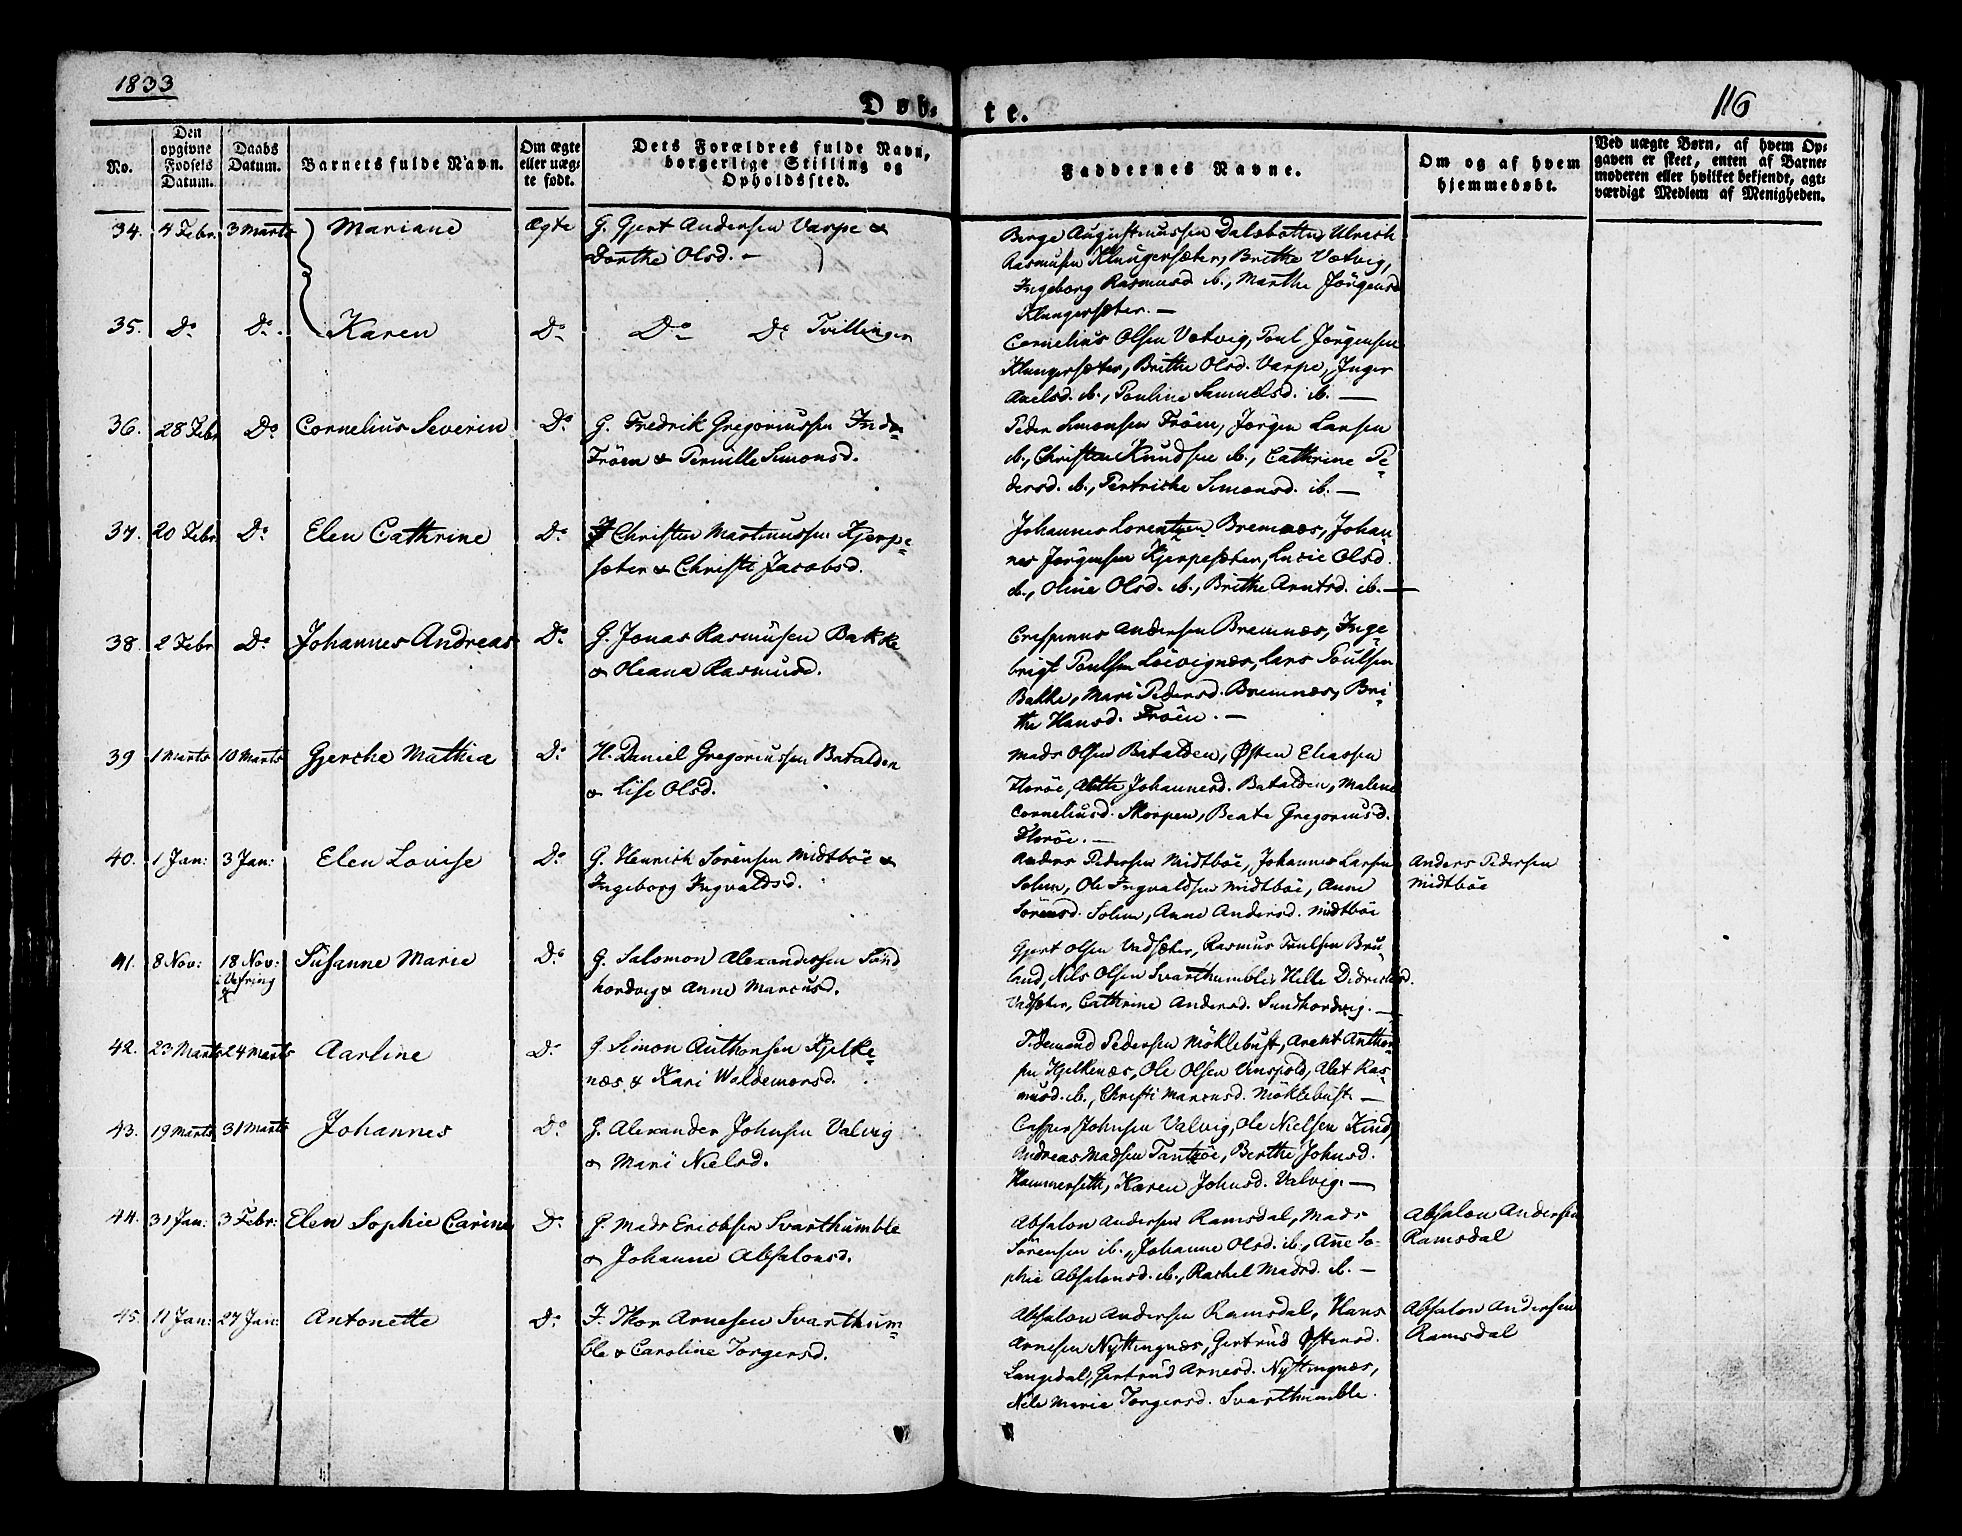 1833
116
Døbte.
No.
Den opgivne Fødsels Datum.
Daabs Datum.
Barnets fulde Navn.
Om ægte eller uægte født.
Dets Forældres fulde Navn, borgerlige Stilling og Opholdssted.
Faddernes Navne.
Om og af hvem hjemmedøbt.
Ved uægte Børn, af hvem Opgaven er skeet, enten af Barnemoderen eller hvilket bekjendt, agtværdigt Medlem af Menigheden.
34. 4 Febr. 3 Marts Mariane Ægte G. Gjert Andersen Varpe &
Dorthe Olsd. –
Børge Augustinussen Dalsbotten, Ulrich
Rasmusen Klungersæter, Brithe Vætvig,
Ingeborg Rasmusd ib., Marthe Jörgensd
Klungersæter. —
35. Do Do. Karen Do Do Do Tvillinger
Cornelius Olsen Vætvig, Poul Jörgensen
Klungersæter, Brithe Olsd. Varpe, Inger
Axelsd. ib., Pauline Samuelsd. ib. —
36. 28 Febr Do Cornelius Severin Do G. Fredrik Gregoriussen Indr-
Fröen & Pernille Simonsd.
Peder Simonsen Fröen, Jörgen Larsen
ib., Christen Knudsen ib., Cathrine Pe-
dersd. ib., Pertriche Simonsd. ib. —
37. 20 Febr Do Elen Cathrine Do Christen Martinussen Kjerpe-
sæter & Christi Jacobsd.
Johannes Lorentzen Bremnæs, Johan-
nes Jörgensen Kjerpesæter, Lucie Olsd.
ib., Oline Olsd. ib., Brithe Arntsd. ib. —
38. 2 Febr Do Johannes Andreas Do G. Jonas Rasmusen Bakke
& Oleana Rasmusd.
Crespinus Andersen Bremnæs, Inge-
brigt Poulsen Löevignæs, Lars Poulsen
Bakke, Mari Pedersd. Bremnæs, Bri-
the Hansd. Fröen. —
39 1 Marts 10 Marts Gjerche Mathia Do H. Daniel Gregoriussen Batalden
& Lise Olsd.
Mads Olsen Batalden, Østen Eliassen
Floröe, Alette Johannesd. Batalden, Malene
Corneliusd. Skorpen, Beate Gregoriusd.
Floröe. —
40. 1 Jan: 3 Jan: Elen Lovise Do G. Henrich Sörensen Midtböe &
Ingeborg Ingvaldsd.
Anders Pedersen Midtböe, Johannes Larsen
Solem, Ole Ingvaldsen Midtböe, Anne
Sörensd. Solem, Anne Andersd. Midtböe
Anders Pedersen
Midtböe
41. 8 Nov: 18 Nov: i Vefring Susanne Marie Do G. Salomon Alexandersen Sund
hordvig & Anne Marcusd.
Gjert Olsen Vadsæter, Rasmus Poulsen Bru-
land, Nils Olsen Svarthumble, Helle Didrichsd.
Vadsæter, Cathrine Andersd. Sundhordvig. —
42. 23 Marts 24 Marts Aarline Do G. Simon Anthonsen Hjelke-
næs & Kari Waldemarsd.
Pedersen Möklebust, Arent Anthon-
sen Hjelkenæs, Ole Olsen Vinspold, Alet Ras-
musd. ib., Christi Marcusd. Möklebust. —
43. 19 Marts 31 Marts Johannes Do G. Alexander Johnsen Valvig
& Mari Nielsd.
Casper Johnsen Valvig, Ole Nielsen Kind,
Andreas Madsen Tantzöe, Berthe Johnsd.
Hammerseth, Karen Johnsd. Valvig. —
44. 31 Jan: 3 Febr: Elen Sophie Carine Do G. Mads Ericksen Svarthumble
& Johanne Absalonsd.
Absalon Andersen Ramsdal, Mads
Sörensen ib., Johanne Olsd. ib., Ane So-
phie Absalonsd. ib., Rachel Madsd. ib. —
Absalon Andersen
Ramsdal
45. 11 Jan: 27 Jan: Antonette Do F. Thor Arnesen Svarthum-
ble & Caroline Torgersd.
Absalon Andersen Ramsdal, Hans
Arnesen Nyttingnæs, Gertrud Østensd.
Langedal, Gertrud Arnesd. Nyttingnæs,
Nele Marie Torgersd. Svarthumble.
Absalon Andersen
Ramsdal